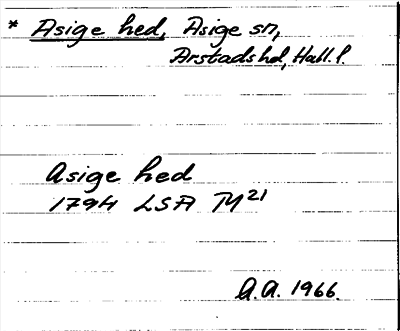 * Asige hed, Asige sn,
Årstads hd, Hall. l.
Asige hed
1794 LSA M²¹
A.A. 1966.